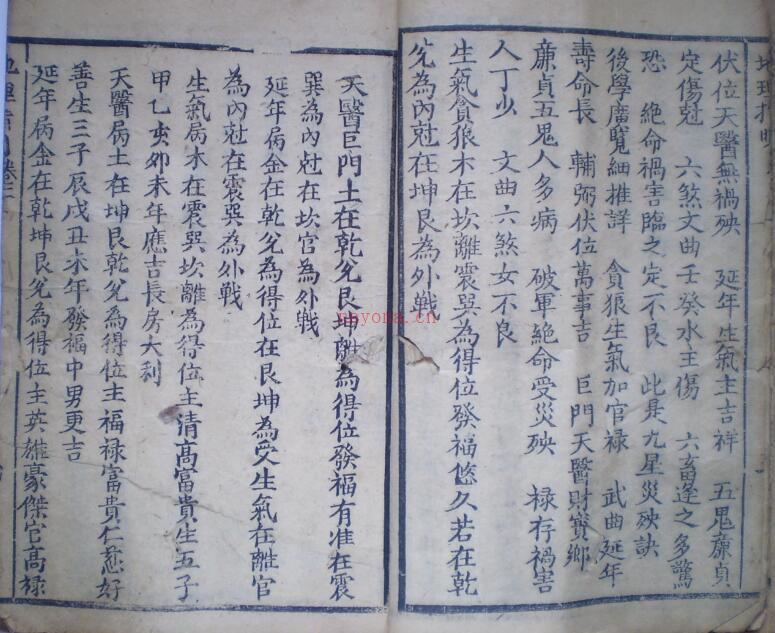 伏位天醫無禍殃　延年生氣主吉祥　五鬼廉貞
定傷尅　六煞文曲壬癸水主傷　六畜逢之多驚
恐　絶命禍害臨之定不良　此是九星災殃訣
後學廣覽細推詳　貪狼生氣加官禄　武曲延年
壽命長　輔弼伏位萬事吉　巨門天醫財寳鄉
廉貞五鬼人多病　破軍絶命受災殃　禄存禍害
人丁少　文曲六煞女不良
生氣貪狼木在坎離震巽為得位發福悠久若在乾
兌為內尅在坤艮為外戰
天醫巨門土在乾兌艮坤離為得位發福有准在震
巽為內尅在坎宫為外戰
延年病金在乾兌為得位在艮坤為受生氣在離官
為內尅在震巽為外戰
生氣病木在震巽坎離為得位主清高富貴生五子
甲乙亥卯未年應吉長房大利
天醫病土在坤艮乾兌為得位主福禄富貴仁慈好
善生三子辰戌丑未年發福中男更吉
延年病金在乾坤艮兌為得位主英雄豪傑官高禄
地理
卷二
zhyona.cn